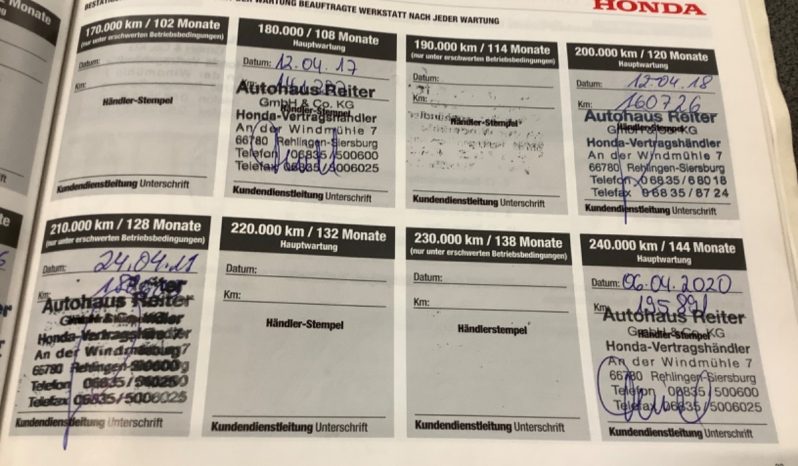 WARTUNG BEAUFTRAGTE WERKSTATT NACH JEDER WARTUNG
HONDA
170.000 km / 102 Monate
(nur unter erschwerten Betriebsbedingungen)
Datum:
Km:
Händler-Stempel
Kundendienstleitung Unterschrift
180.000 / 108 Monate
Hauptwartung
Datum: 12.04.17
Km:
Händler-Stempel
Autohaus Reiter
GmbH & Co. KG
Honda-Vertragshändler
An der Windmühle 7
66780 Rehlingen-Siersburg
Telefon 06835/500600
Telefax 06835/5006025
Kundendienstleitung Unterschrift
190.000 km / 114 Monate
(nur unter erschwerten Betriebsbedingungen)
Datum:
Km:
Händler-Stempel
Kundendienstleitung Unterschrift
200.000 km / 120 Monate
Hauptwartung
Datum: 12.04.18
Km: 160726
Autohaus Reiter
GmbH & Co. KG
Händler-Stempel
Honda-Vertragshändler
An der Windmühle 7
66780 Rehlingen-Siersburg
Telefon 06835/68018
Telefax 06835/8724
Kundendienstleitung Unterschrift
210.000 km / 128 Monate
(nur unter erschwerten Betriebsbedingungen)
Datum: 24.04.11
Km:
Autohaus Reiter
GmbH & Co. KG
Honda-Vertragshändler
An der Windmühle 7
66780 Rehlingen-Siersburg
Telefon
Telefax 06835/5006025
Kundendienstleitung Unterschrift
220.000 km / 132 Monate
Hauptwartung
Datum:
Km:
Händler-Stempel
Kundendienstleitung Unterschrift
230.000 km / 138 Monate
(nur unter erschwerten Betriebsbedingungen)
Datum:
Km:
Händlerstempel
Kundendienstleitung Unterschrift
240.000 km / 144 Monate
Hauptwartung
Datum: 06.04.2020
Km: 195891
Autohaus Reiter
GmbH & Co. KG
Händler-Stempel
Honda-Vertragshändler
An der Windmühle 7
66780 Rehlingen-Siersburg
Telefon 06835/500600
Telefax 06835/5006025
Kundendienstleitung Unterschrift